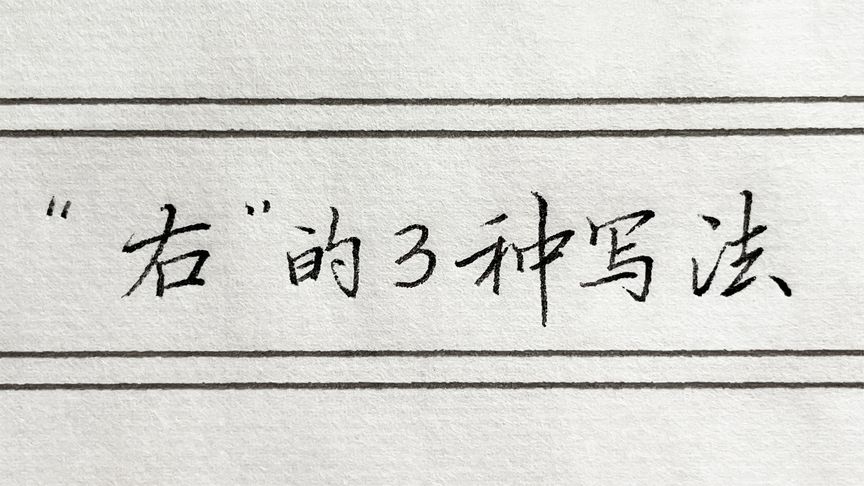 “右”的3种写法